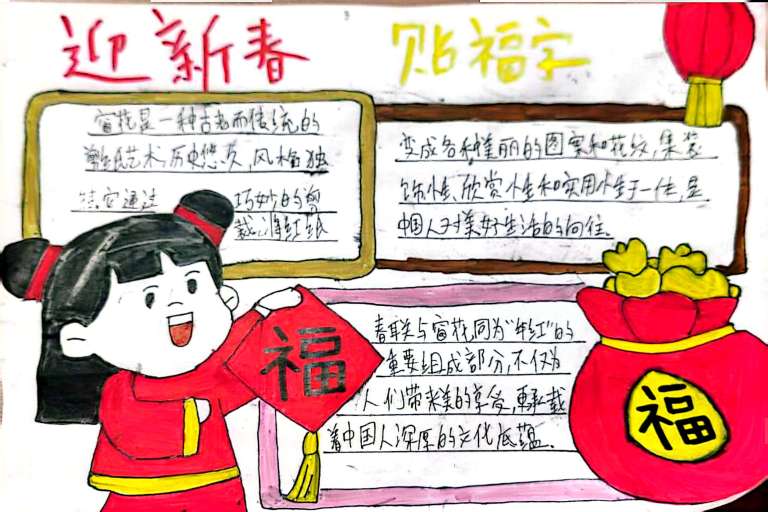 迎新春 贴福字
窗花是一种古老而传统的
剪纸艺术,历史悠久,风格独
特它通过 巧妙的剪
裁,将红纸
变成各种美丽的图案和花纹,集装
饰性、欣赏性和实用性于一体,是
中国人对美好生活的向往.
福
春联与窗花同为"年红"的
重要组成部分,不仅为
人们带来美的享受,更承载
着中国人深厚的文化底蕴.
福